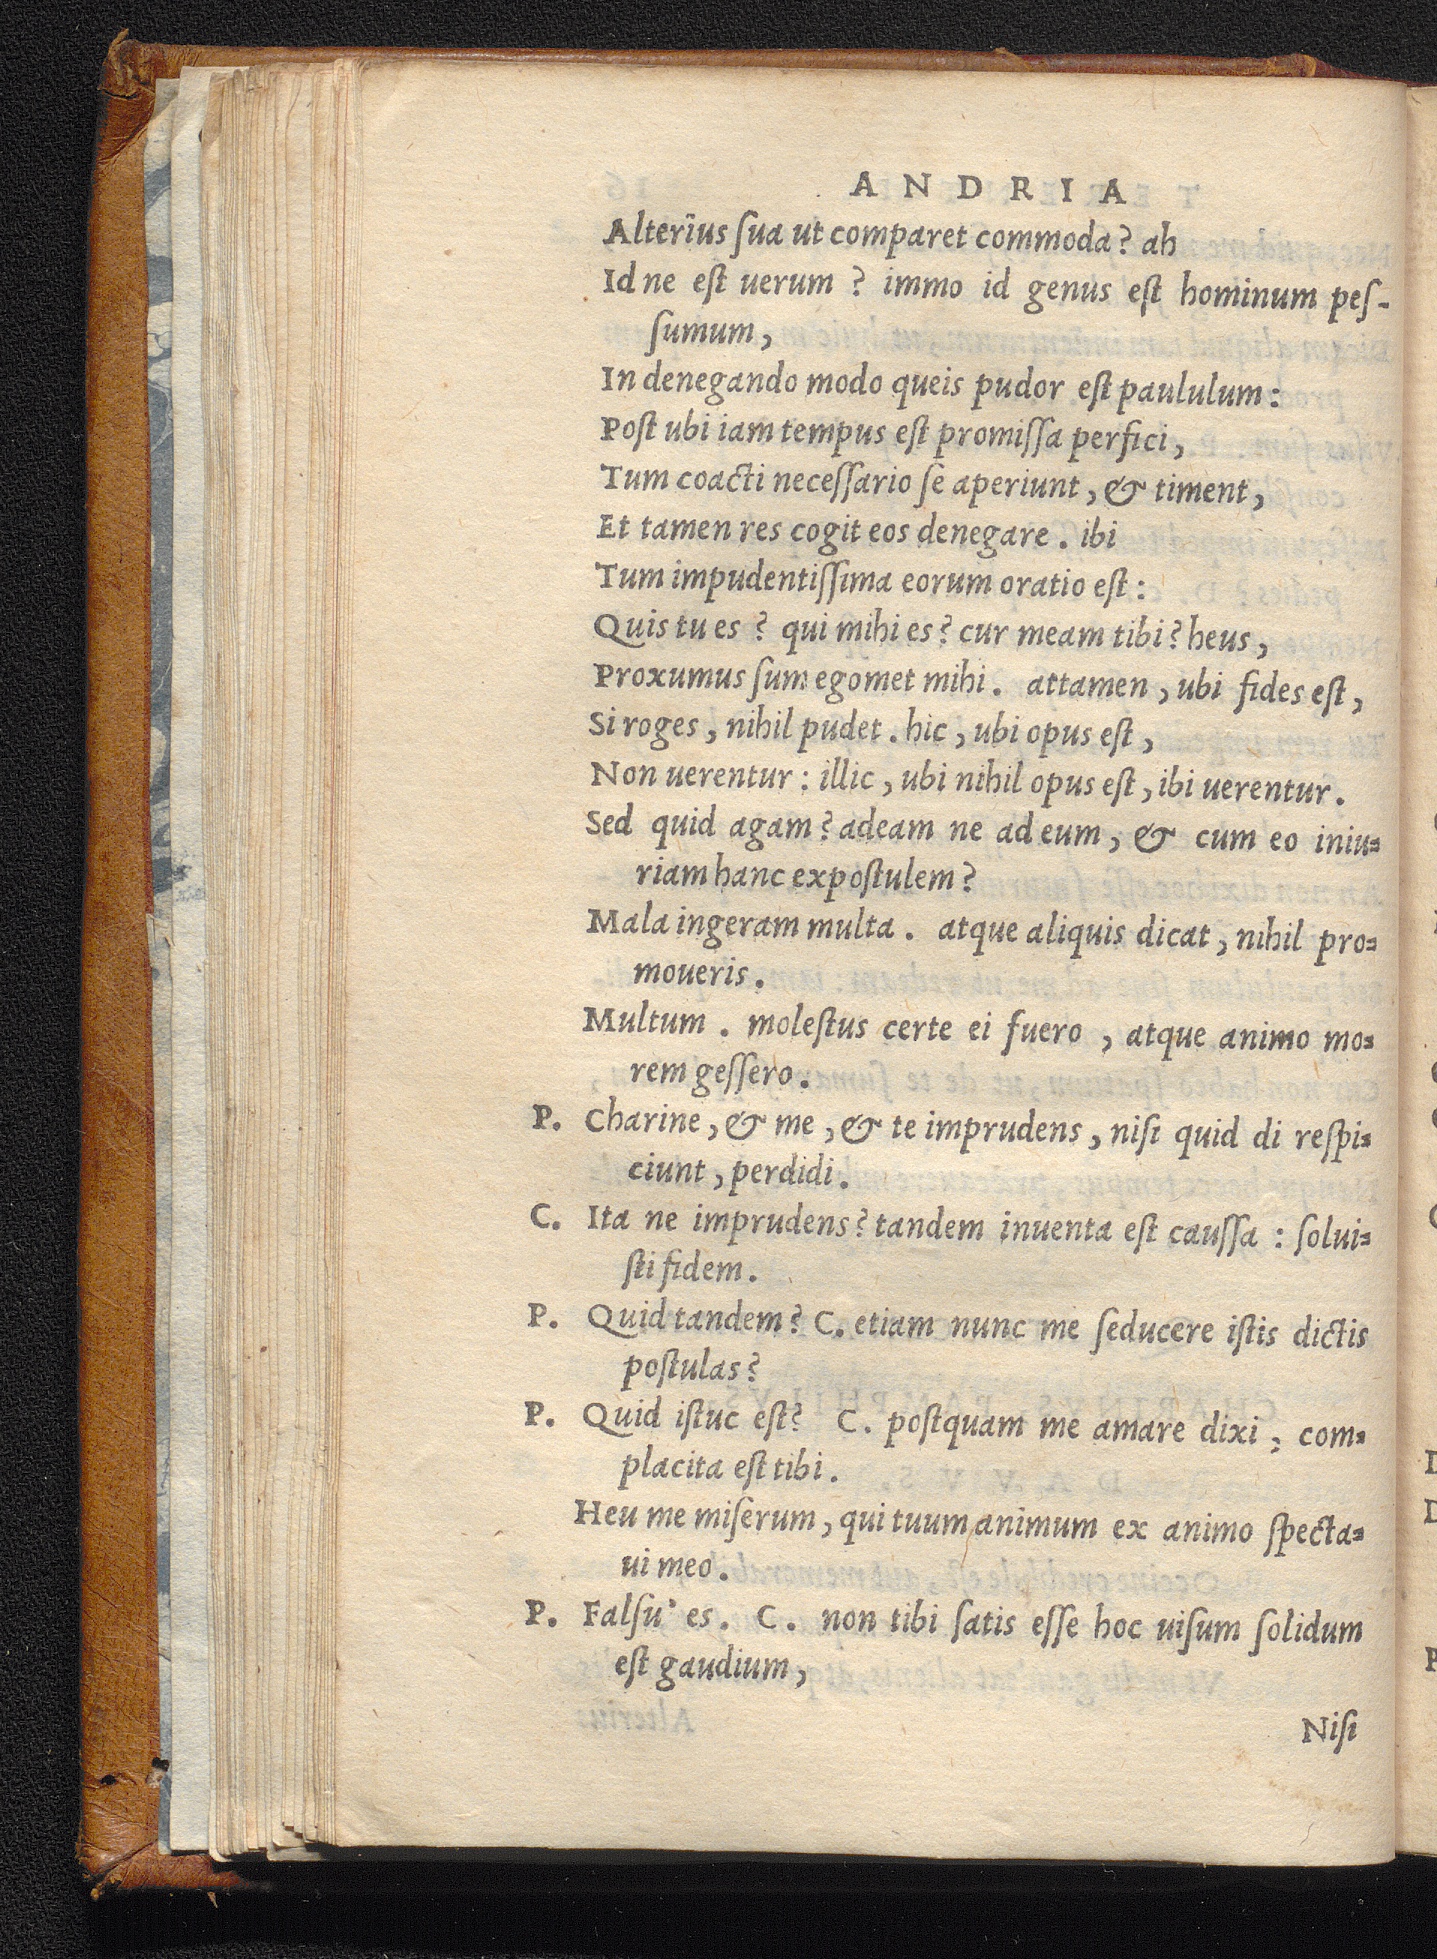 ANDRIA
Alterîus ſua ut comparet commoda? ah
Id ne eſt uerum? immo id genus eſt hominum peſ-
ſumum,
In denegando modo queis pudor eſt paululum:
Poſt ubi iam tempus eſt promiſſa perfici,
Tum coacti neceſſario ſe aperiunt, & timent,
Et tamen res cogit eos denegare. ibi
Tum impudentiſſima eorum oratio eſt:
Quis tu es? qui mihi es? cur meam tibi? heus,
Proxumus ſum egomet mihi. attamen, ubi fides eſt,
Si roges, nihil pudet. hic, ubi opus eſt,
Non uerentur: illic, ubi nihil opus eſt, ibi uerentur.
Sed quid agam? adeam ne ad eum, & cum eo iniu-
riam hanc expoſtulem?
Mala ingeram multa. atque aliquis dicat, nihil pro-
moueris.
Multum. moleſtus certe ei fuero, atque animo mo-
rem geſſero.
P. Charine, & me, & te imprudens, niſi quid di reſpi-
ciunt, perdidi.
C. Ita ne imprudens? tandem inuenta eſt cauſſa: ſolui-
ſti fidem.
P. Quid tandem? C. etiam nunc me ſeducere iſtis dictis
poſtulas?
P. Quid iſtuc eſt? C. poſtquam me amare dixi, com-
placita eſt tibi.
Heu me miſerum, qui tuum animum ex animo ſpecta-
ui meo.
P. Falſu' es. C. non tibi ſatis eſſe hoc uiſum ſolidum
eſt gaudium,
Niſi